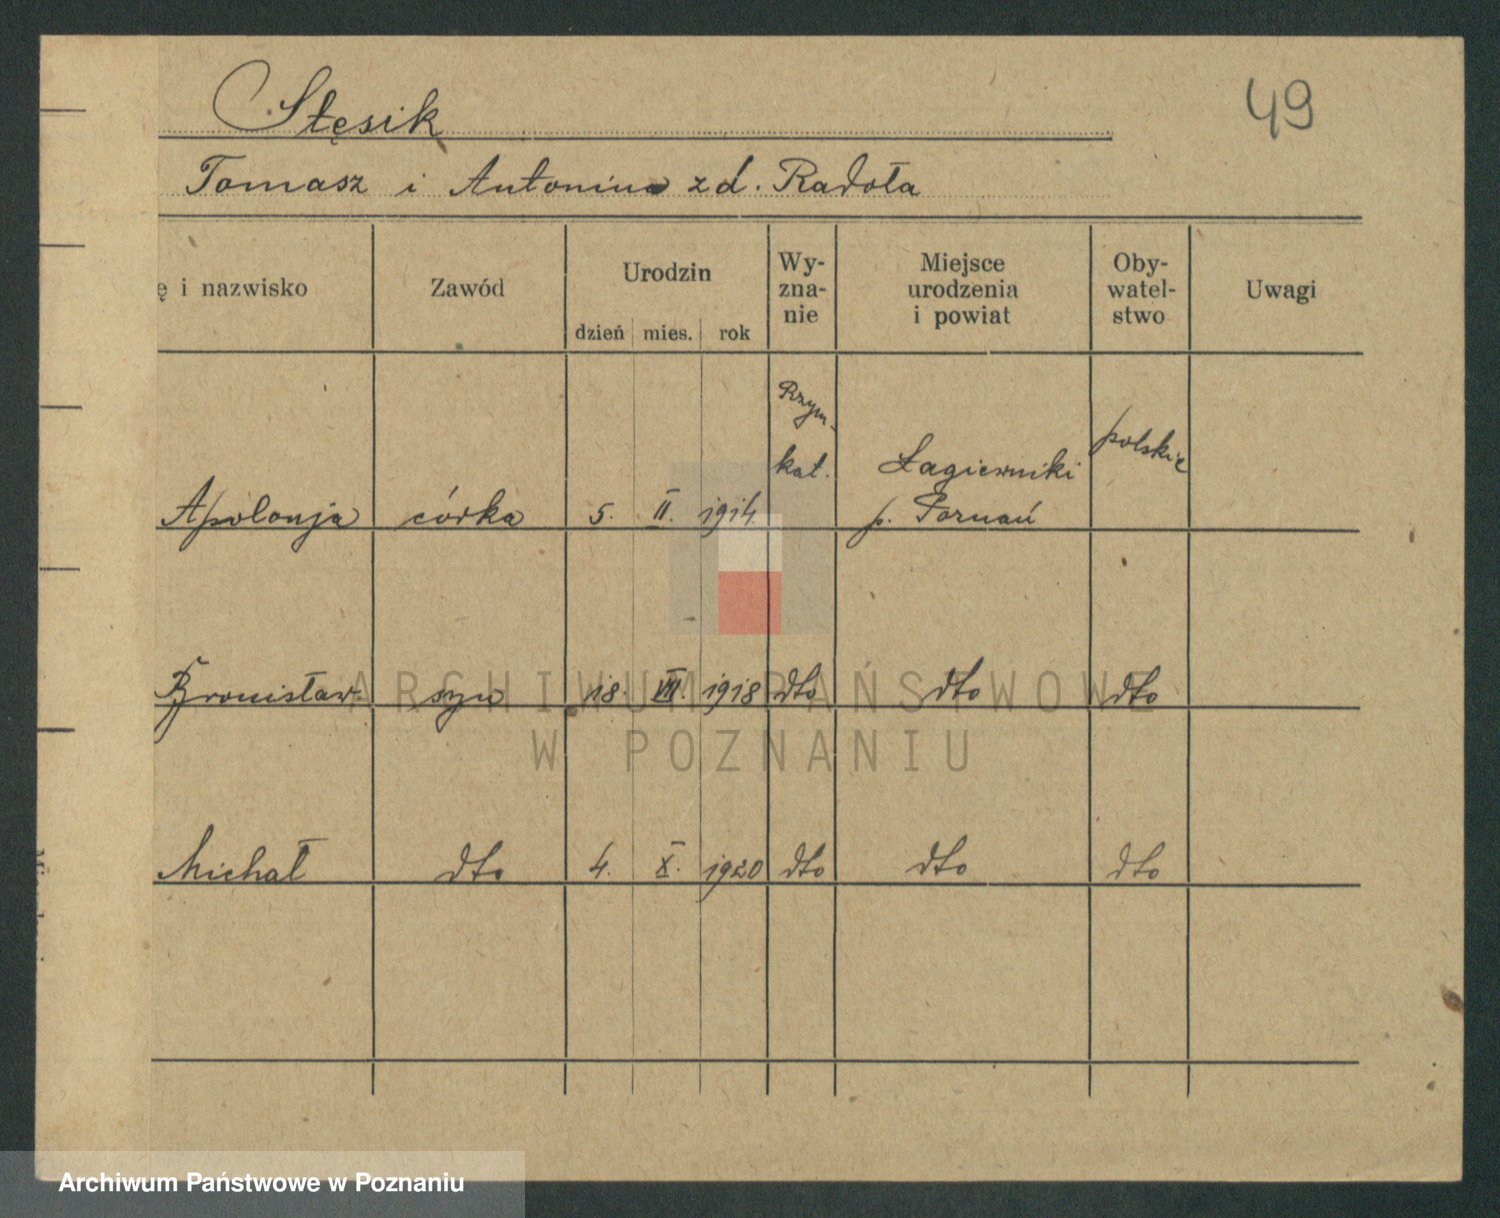 49
Stęsik
Tomasz i Antonina zd. Radoła
ę i nazwisko
Zawód
Urodzin
dzień mies. rok
Wy-
zna-
nie
Miejsce
urodzenia
i powiat
Oby-
watel-
stwo
Uwagi
Apolonja córka 5. II. 1914. Rzym.
kat.
Łagiewniki
p. Poznań
polskie
Bronisław syn 18. VIII. 1918 dto dto dto
Michał dto 4. X. 1920 dto dto dto
ARCHIWUM PAŃSTWOWE
W POZNANIU
Archiwum Państwowe w Poznaniu